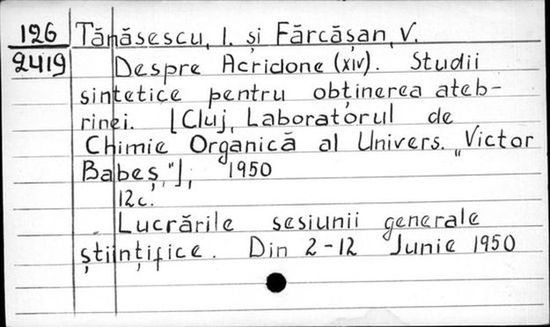 126 Tănăsescu, I. și Fărcășan, V.
2419 Despre Acridone (XIV). Studii
sintetice pentru obținerea ateb-
rinei. [Cluj, Laboratorul de
Chimie Organică al Univers. „Victor
Babeș,"], 1950
12c.
Lucrările sesiunii generale
științifice. Din 2-12 Junie 1950